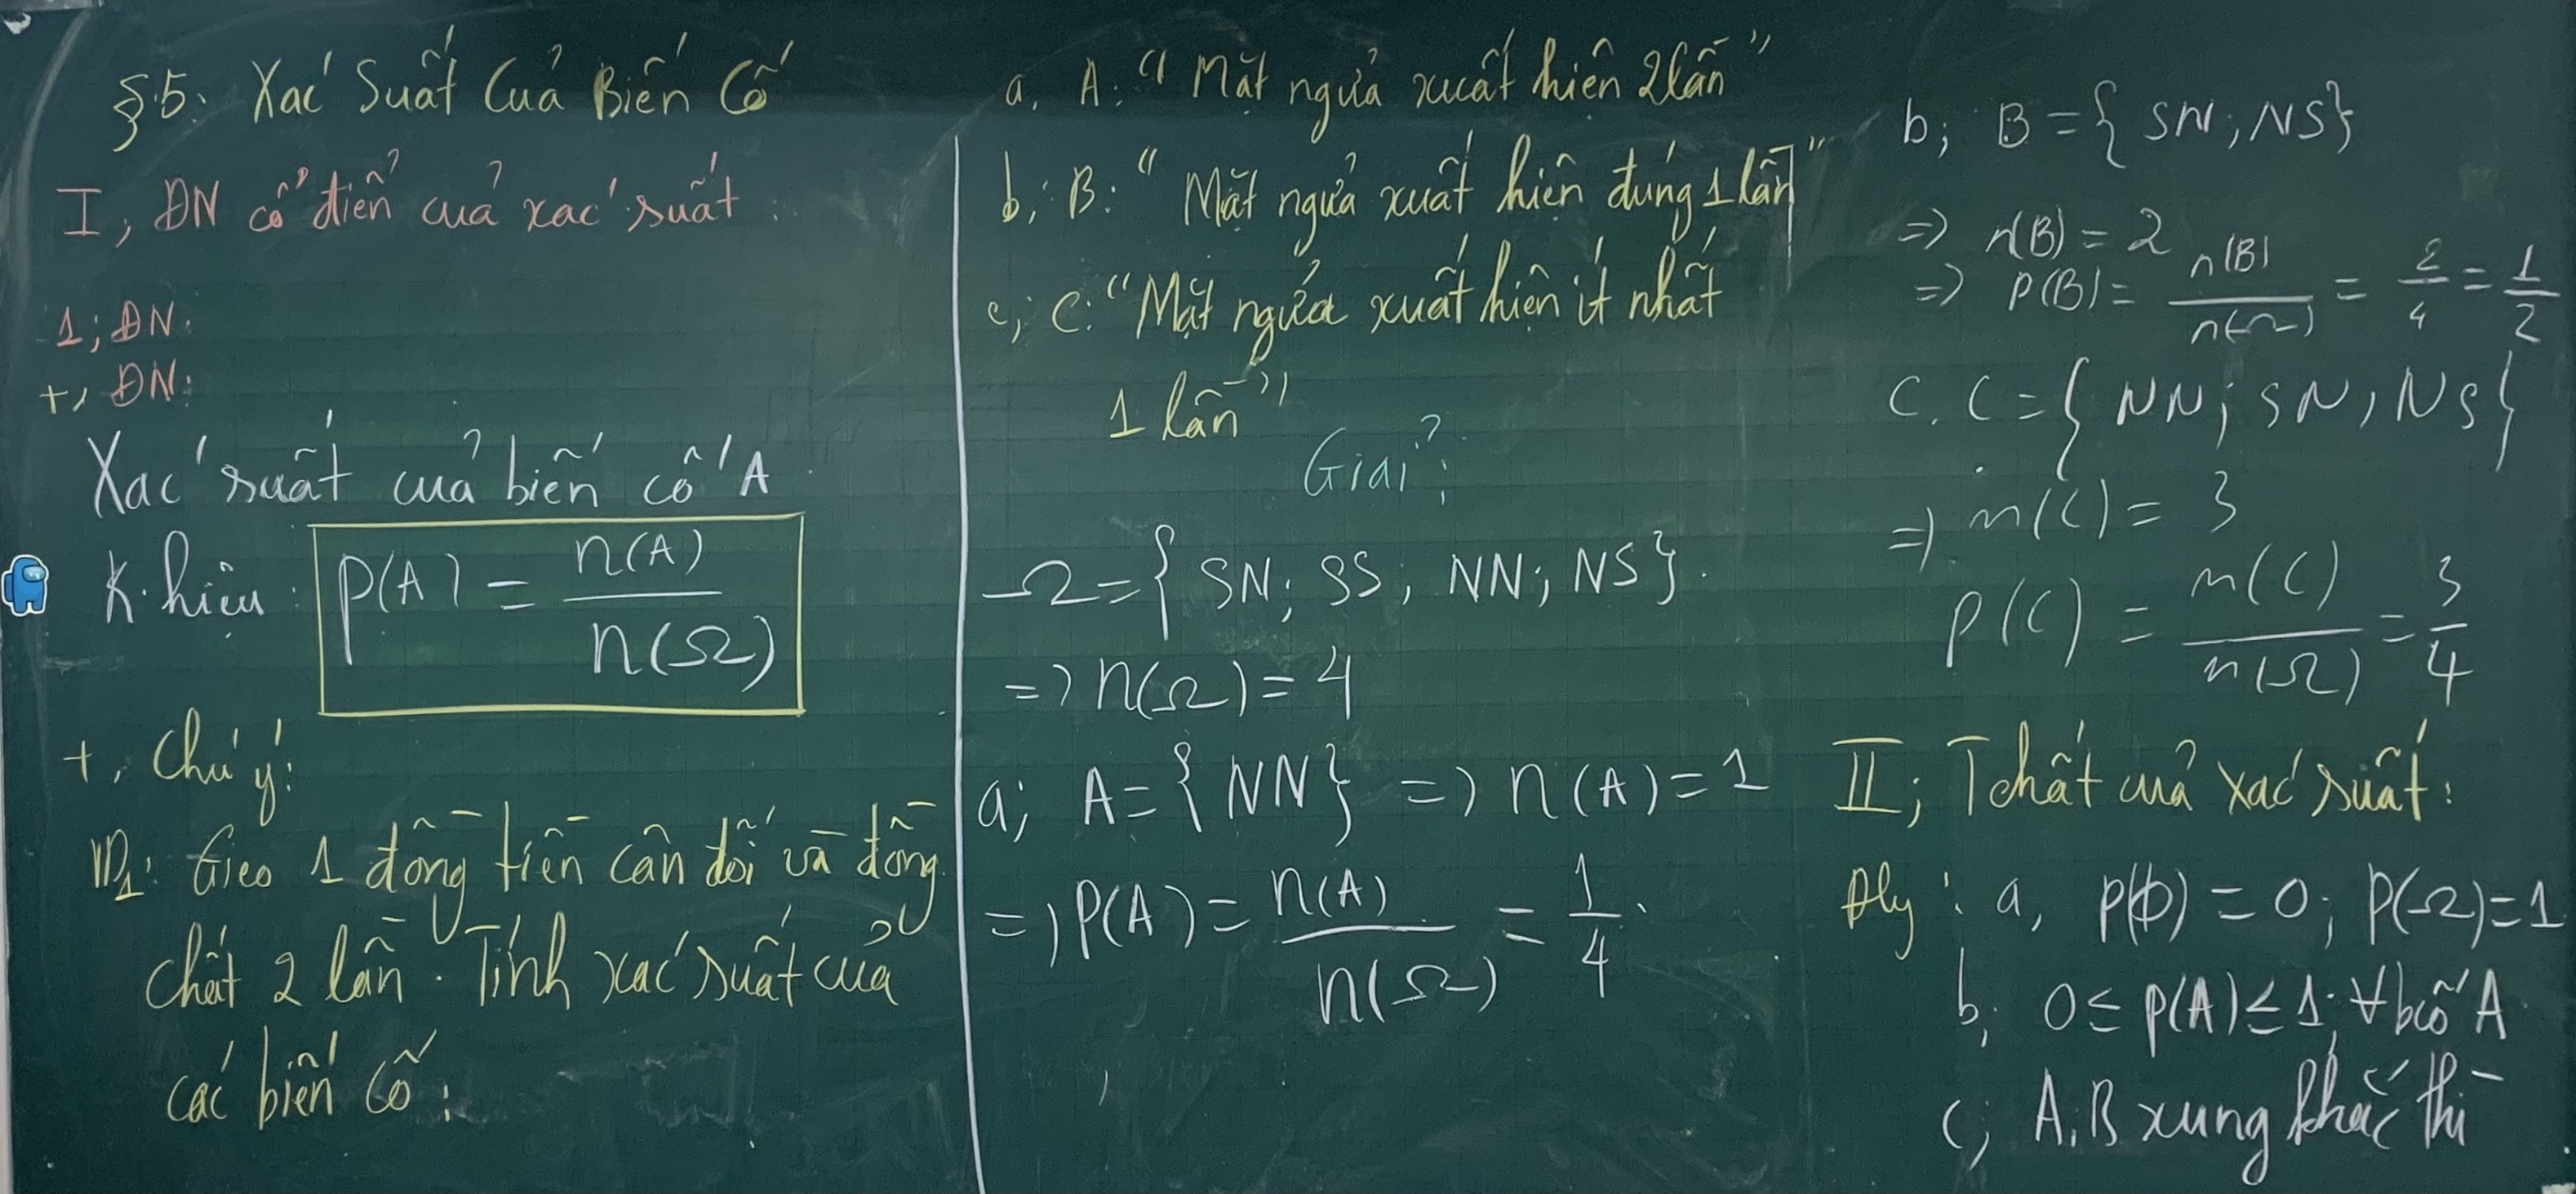 §5. Xác Suất Của Biến Cố
I, ĐN cổ điển của xác suất:
1; ĐN:
+, ĐN:
Xác suất của biến cố A
K.hiệu: P(A) = n(A)/n(Ω)
+, Chú ý:
VD1: Gieo 1 đồng tiền cân đối và đồng
chất 2 lần. Tính xác suất của
các biến cố:
a, A: "Mặt ngửa xuất hiện 2 lần"
b, B: "Mặt ngửa xuất hiện đúng 1 lần"
c, C: "Mặt ngửa xuất hiện ít nhất
1 lần"
Giải:
Ω = { SN; SS; NN; NS}.
=> n(Ω) = 4
a; A = { NN } => n(A) = 1
=> P(A) = n(A)/n(Ω) = 1/4.
b; B = { SN; NS}
=> n(B) = 2
=> P(B) = n(B)/n(Ω) = 2/4 = 1/2
c. C = { NN; SN, NS }
=> n(C) = 3
P(C) = n(C)/n(Ω) = 3/4
II; T chất của xác suất:
Đly: a, P(ϕ) = 0; P(Ω) = 1
b; 0 ≤ P(A) ≤ 1; ∀ bcố A
c; A, B xung khắc thì